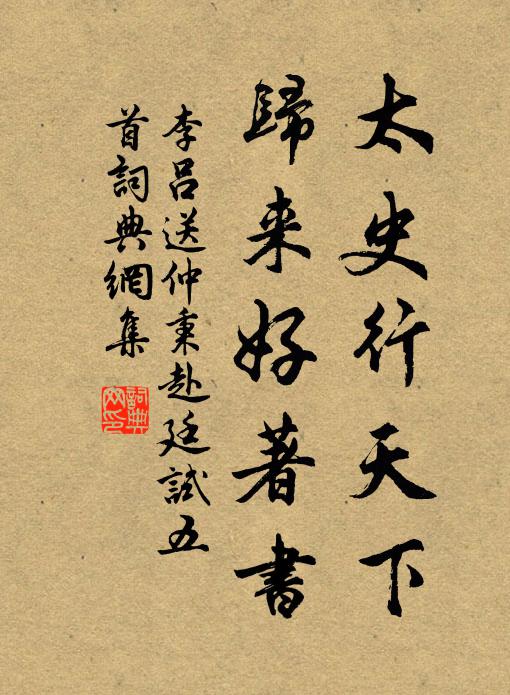 太史行天下
歸来好著書
李呂送仲秉赴廷試五
首詞典網集
詞典